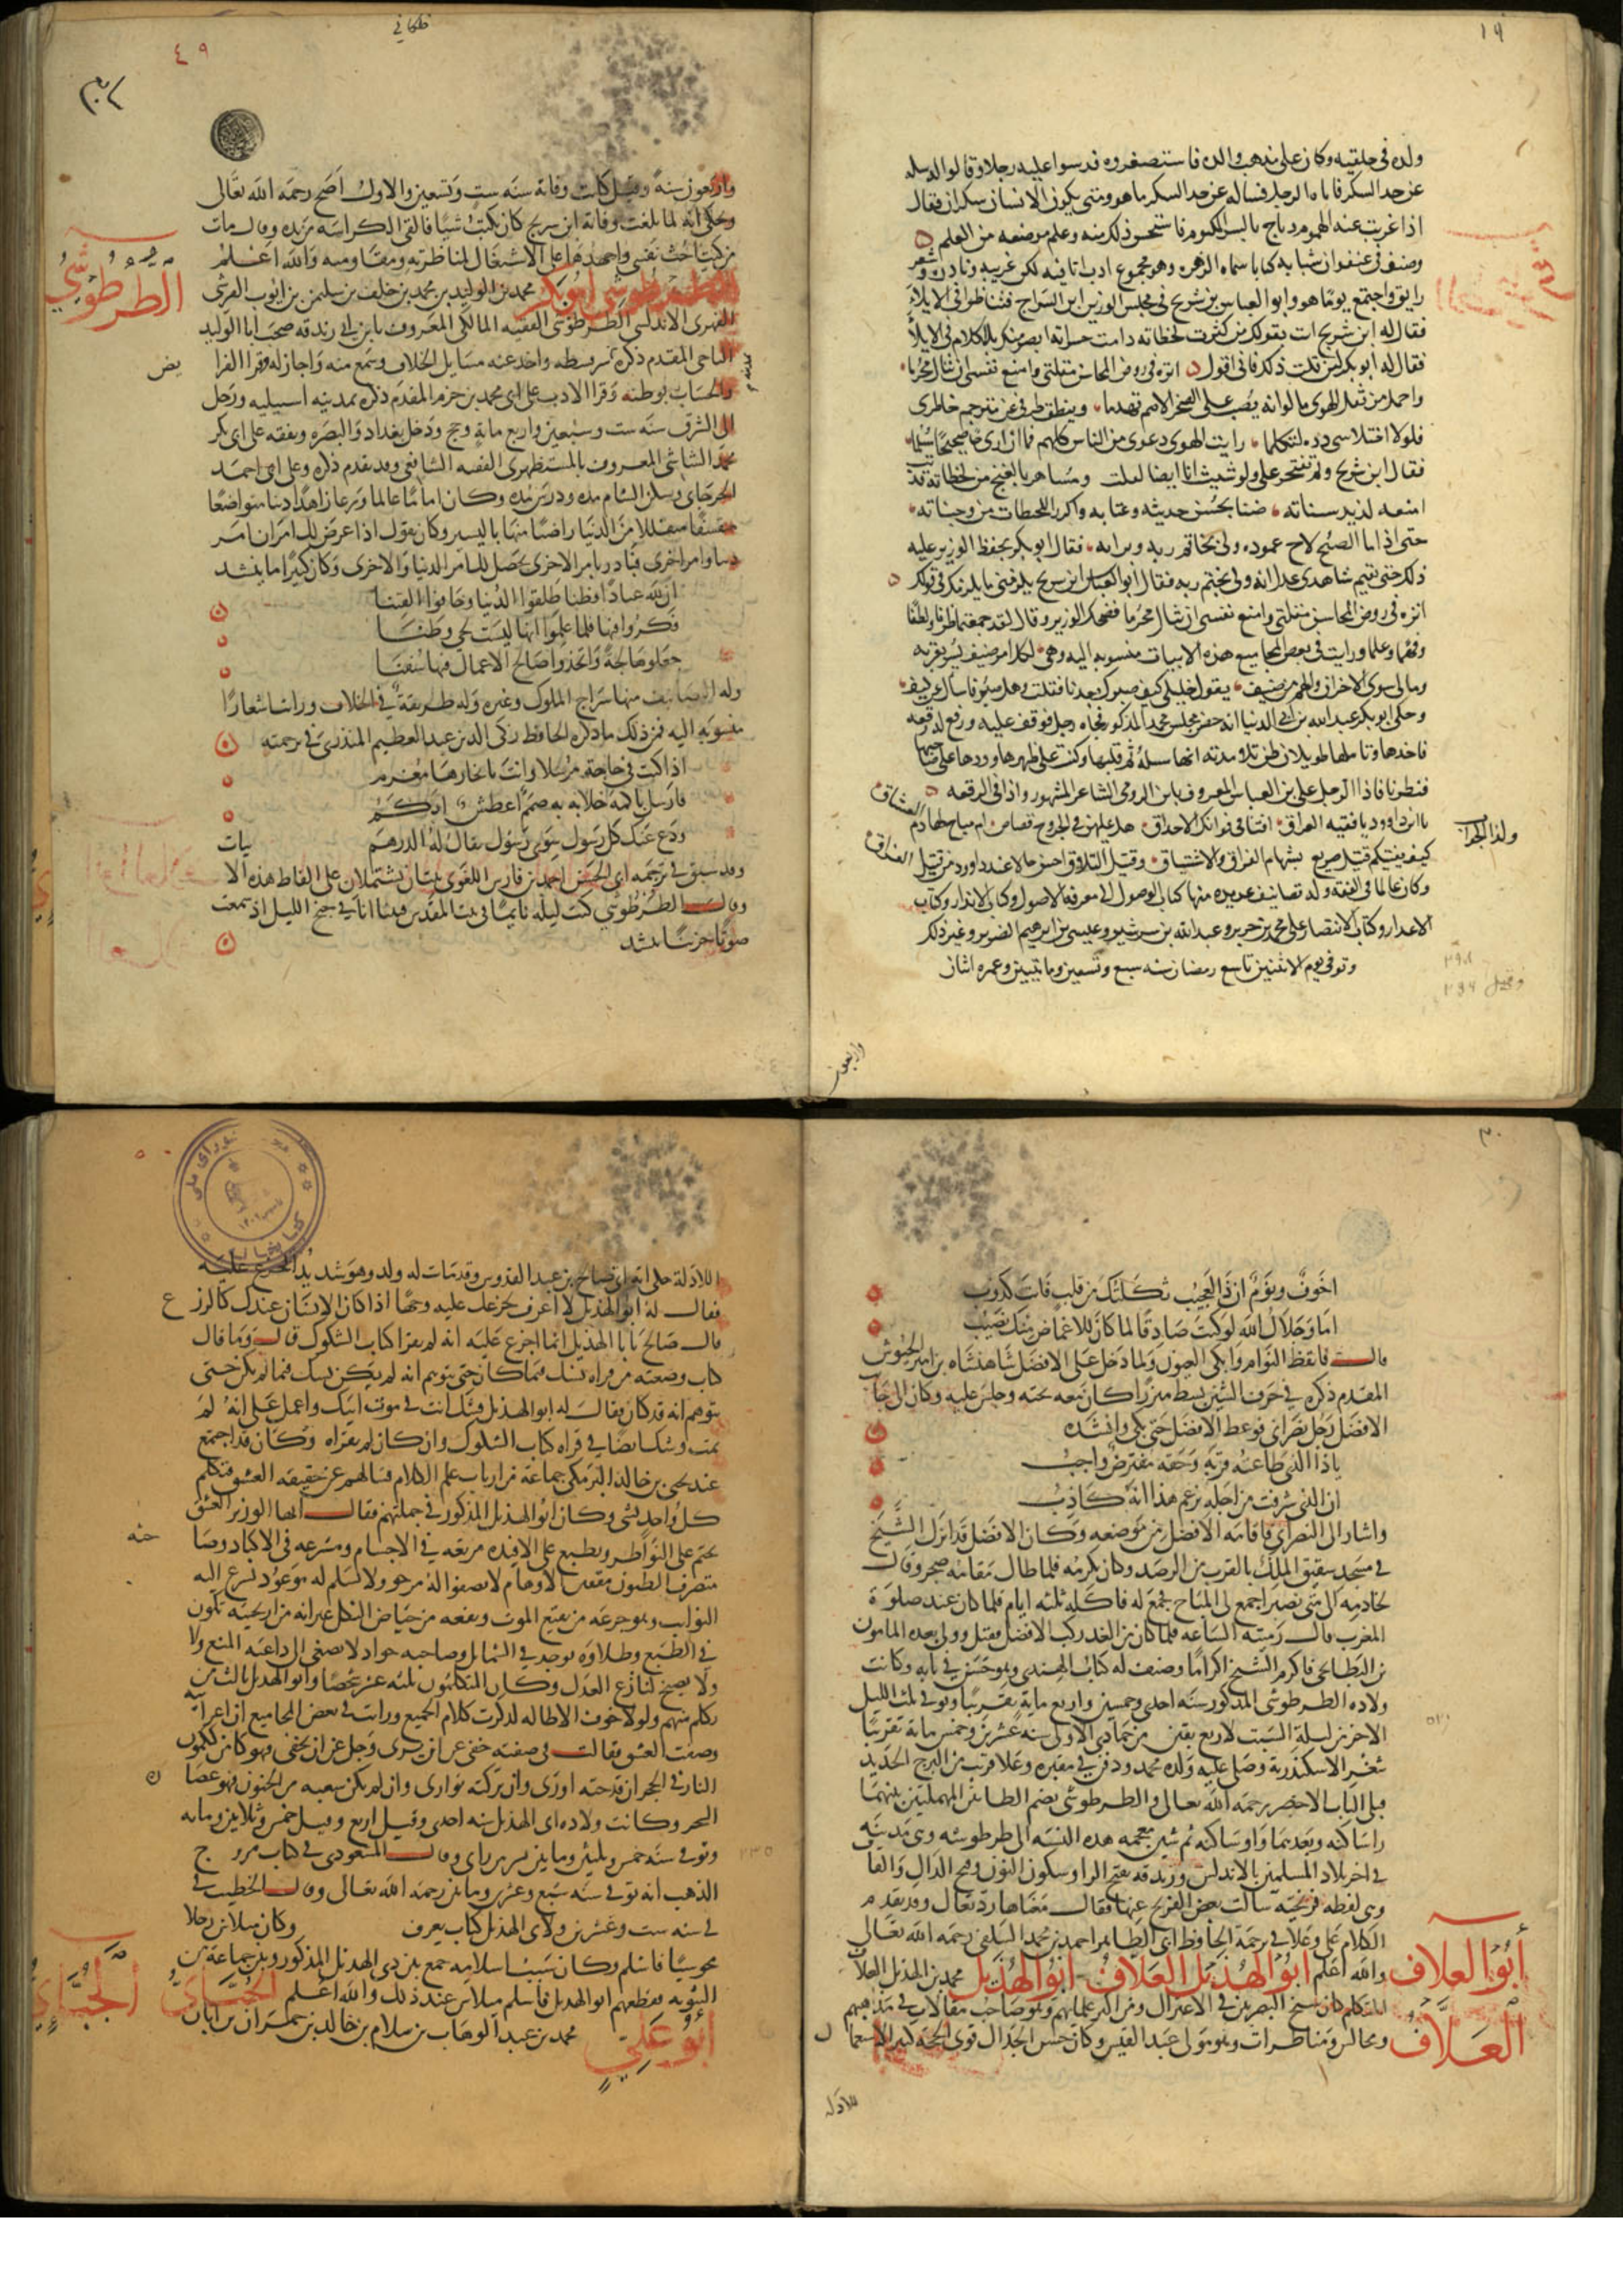 ١٩
ولده في حلقته وكان على مذهب والده فاستصغروه فدسوا عليه رجلا وقالوا له سله
عن حد السكر فاتاه الرجل فساله عن حد السكر ما هو ومتى يكون الانسان سكران فقال
اذا عزبت عنه الهموم وباح بالسر المكتوم فاستحسن ذلك منه وعلم موضعه من العلم
وصنف في عنفوان شبابه كتابا سماه الزهره وهو مجموع ادب اتى فيه بكل غريبه ونادره وشعر
رايق واجتمع يوما هو وابو العباس بن شريح في مجلس الوزير ابن الجراح فتناظرا في الايلاء
فقال له ابن شريح انت بقولك من كثرت لحظاته دامت حسراته ابصر منك بالكلام في الايلاء
فقال له ابو بكر لئن قلت ذلك فاني اقول انزه في روض المحاسن مقلتي وامنع نفسي ان تنال محرما
واحمل من ثقل الهوى ما لو انه يصب على الصخر الاصم تهدما وينطق طرفي عن مترجم خاطري
فلولا اختلاسي رده لتكلما رايت الهوى دعوى من الناس كلهم فما ان ارى حبا صحيحا مسلما
فقال ابن شريح ولم تفتخر علي ولو شئت انا ايضا لقلت ومساهر بالغنج من لحظاته قد بت
امنعه لذيذ سناته ضنا بحسن حديثه وعتابه واكرر اللحظات من وجناته
حتى اذا ما الصبح لاح عموده ولى بخاتم ربه وبراته فقال ابو بكر يحفظ الوزير عليه
ذلك حتى يقيم شاهدي عدل انه ولى بختم ربه فقال ابو العباس ابن سريج يلزمني ما يلزمك في قولك
انزه في روض المحاسن مقلتي وامنع نفسي ان تنال محرما فضحك الوزير وقال لقد جمعتما ظرفا ولطفا
وفهما وعلما ورايت في بعض المجاميع هذه الابيات منسوبه اليه وهي لكل امرء ضيف يسر بقربه
ومالي سوى الاحزان والهم من ضيف يقول خليلي كيف صبرك بعدنا فقلت وهل صبر فاسال عن كيف
وحكى ابو بكر عبد الله بن ابي الدنيا انه حضر مجلس محمد المذكور فجاه رجل فوقف عليه ورفع له رقعه
فاخذها وتاملها طويلا وظن تلامذته انها مسله ثم قلبها وكتب على ظهرها وردها على صاحبها
فنظرنا فاذا الرجل علي بن العباس المعروف بابن الرومي الشاعر المشهور واذا في الرقعه
يا ابن داوود يا فقيه العراق افتنا في قواتل الاحداق هل عليهن في الجروح قصاص ام مباح لها دم العشاق
ولذا الجواب
كيف يفتيكم قتيل صريع بسهام الفراق والاشتياق وقتيل التلاق احسن حالا عند داود من قتيل الفراق
وكان عالما في الفقه وله تصانيف عديده منها كتاب الوصول الى معرفة الاصول وكتاب الانذار وكتاب
الاعذار وكتاب الانتصار على محمد بن جرير وعبد الله بن سرشير وعيسى بن ابرهيم الضرير وغير ذلك
وتوفي يوم الاثنين تاسع رمضان سنه سبع وتسعين ومايتين وعمره اثنان
واربعون
٤٩
واربعون سنة وقيل كانت وفاته سنه ست وتسعين والاول اصح رحمه الله تعالى
وحكي انه لما بلغت وفاته ابن سريج كان يكتب شيا فالقى الكراسه من يده وقال مات
من كنت احث نفسي واجهدها على الاشتغال لمناظرته ومقاومته والله اعلم
الطرطوشي
الطرطوشي ابو بكر محمد بن الوليد بن محمد بن خلف بن سليمن بن ايوب القرشي
الفهري الاندلسي الطرطوشي الفقيه المالكي المعروف بابن ابي رندقه صحب ابا الوليد
الباجي المقدم ذكره بسرقسطه واخذ عنه مسايل الخلاف وسمع منه واجاز له وقرا الفرا
يض
والحساب بوطنه وقرا الادب على ابي محمد بن حزم المقدم ذكره بمدينه اسبيليه ورحل
الى الشرق سنه ست وسبعين واربع مايه وحج ودخل بغداد والبصره وتفقه على ابي بكر
محمد الشاشي المعروف بالمستظهري الفقيه الشافعي وقد تقدم ذكره وعلى ابي احمد
الجرجاني وسكن الشام مده ودرس بها وكان اماما عالما ورعا زاهدا دينا متواضعا
متقشفا متقللا من الدنيا راضيا منها باليسير وكان يقول اذا عرض لك امران امر
دنيا وامر اخرى فبادر بامر الاخرى يحصل لك امر الدنيا والاخرى وكان كثيرا ما ينشد
ان لله عبادا فطنا طلقوا الدنيا وخافوا الفتنا
فكروا فيها فلما علموا انها ليست لحي وطنا
جعلوها لجة واتخذوا صالح الاعمال فيها سفنا
وله التصانيف منها سراج الملوك وغيره وله طريقة في الخلاف ورايت اشعارا
منسوبة اليه فمن ذلك ما ذكره الحافظ زكي الدين عبد العظيم المنذري في ترجمته
اذا كنت في حاجة مرسلا وانت بانجازها مغرم
فارسل باكمه خلابه به صمم اعطش ابكم
ودع عنك كل رسول سوى رسول يقال له الدرهم
وقد سبق في ترجمه ابي الحسن احمد بن فارس اللغوي بيتان يشتملان على الفاظ هذه الا
بيات
وقال الطرطوشي كنت ليله نايما في بيت المقدس فبينا انا في جنح الليل اذ سمعت
صوتا حزينا ينشد
٣٠
اخوف ونوم ان ذا لعجيب ثكلتك من قلب فانت كذوب
اما وجلال الله لو كنت صادقا لما كان للاغماض منك نصيب
قال فايقظ النوام وابكى العيون ولما دخل على الافضل شاهنشاه بن امير الجيوش
المقدم ذكره في حرف الشين بسط ميزرا كان معه تحته وجلس عليه وكان الى جانب
الافضل رجل نصراني فوعظ الافضل حتى بكى وانشده
ياذا الذي طاعته قربة وحقه مفترض واجب
ان الذي شرفت من اجله يزعم هذا انه كاذب
واشار الى النصراني فاقامه الافضل من موضعه وكان الافضل قد انزل الشيخ
في مسجد سقيق الملك بالقرب من الرصد وكان يكرهه فلما طال مقامه ضجر وقال
لخادمه الى متى نصبر اجمع لي المباح فجمع له فاكله ثلثه ايام فلما كان عند صلوة
المغرب قال رميته الساعه فلما كان من الغد ركب الافضل فقتل وولي بعده المامون
بن البطايحي فاكرم الشيخ اكراما وصنف له كتاب الهندي وهو حسن في بابه وكانت
ولاده الطرطوشي المذكور سنه احدى وخمسين واربع مايه تقريبا وتوفي ثلث الليل
الاخر من ليلة السبت لاربع بقين من جمادى الاولى سنه عشرين وخمس مائة تقريبا
بثغر الاسكندرية وصلى عليه ولده محمد ودفن في مقبره وعلا قريب من البرج الجديد
قبلي الباب الاخضر رحمه الله تعالى والطرطوشي بضم الطائين المهملتين بينهما
را ساكنه وبعدهما واو ساكنه ثم شين معجمه هذه النسبه الى طرطوشه وهي مدينه
في اخر بلاد المسلمين بالاندلس ورندقه بفتح الرا وسكون النون وفتح الدال والقا
وهي لفظه فرنجيه سالت بعض الفرنج عنها فقال معناها رد تعال وقد تقدم
الكلام على وعلا في ترجمة الحافظ ابي الطاهر احمد بن محمد السلفي رحمه الله تعالى
والله اعلم ابو الهذيل العلاف ابو الهذيل محمد بن الهذيل العلاف
ابو العلاف
المتكلم كان شيخ البصريين في الاعتزال ومن اكبر علمائهم وهو صاحب مقالات في مذاهبهم
العلاف
ومجالس ومناظرات وهو مولى عبد القيس وكان حسن الجدال قوي الحجه كثير الاستعما
ل
للادله
٥٠
للادلة حكي انه اتى صالح بن عبد القدوس وقد مات له ولد وهو شديد الجزع عليه
فقال له ابو الهذيل لا اعرف لجزعك عليه وجها اذا كان الانسان عندك كالزر
ع
قال صالح يا با الهذيل انما اجزع عليه انه لم يقرا كتاب الشكوك قال وما قال
كتاب وضعته من قراه شك فيما كان حتى يتوهم انه لم يكن وشك فيما لم يكن حتى
يتوهم انه قد كان فقال له ابو الهذيل فشك انت في موت ابنك واعمل على انه لم
يمت وشك ايضا في قراه كتاب الشكوك وان كان لم يقراه وكان قد اجتمع
عند يحيى بن خالد البرمكي جماعة من ارباب علم الكلام فسالهم عن حقيقه العشق فتكلم
كل واحد بشي وكان ابو الهذيل المذكور في جملتهم فقال ايها الوزير العشق
يختم على النواظر ويطبع على الافيده مرتعه في الاجسام ومشرعه في الاكباد وصا
حبه
متصرف الظنون متفنن الاوهام لا يصفو له مرجو ولا يسلم له موعود تسرع اليه
النوايب وهو جرعه من نقيع الموت ونقعه من حياض الثكل غير انه من اريحيه تكون
في الطبع وطلاوه توجد في الشمايل وصاحبه جواد لا يصغي الى داعيه المنع ولا
ولا يصيخ لنازع العدل وكان المتكلمون ثلثه عشر شخصا وابو الهذيل ثالث من
تكلم منهم ولولا خوف الاطاله لذكرت كلام الجميع ورايت في بعض المجاميع ان اعرابيه
وصفت العشق فقالت في صفته خفي عن ان يرى وجل عن ان يخفى فهو كامن ككمون
النار في الحجر ان قدحته اورى وان تركته توارى وان لم يكن شعبه من الجنون فهو عصا
ره
السحر وكانت ولاده ابي الهذيل سنه احدى وقيل اربع وقيل خمس وثلاثين ومايه
وتوفي سنه خمس وثلثين ومايتين بسر من راي وقال المسعودي في كتاب مروج
الذهب انه توفي سنه سبع وعشرين ومايتين رحمه الله تعالى وقال الخطيب في
في سنه ست وعشرين ولابي الهذيل كتاب يعرف وكان ميلاس رجلا
مجوسيا فاسلم وكان سبب اسلامه جمع بين يدي الهذيل المذكور وبين جماعة من
الثنويه فقطعهم ابو الهذيل فاسلم ميلاس عند ذلك والله اعلم الجبائي
الجبائي
ابو علي محمد بن عبد الوهاب بن سلام بن خالد بن حمران بن ابان